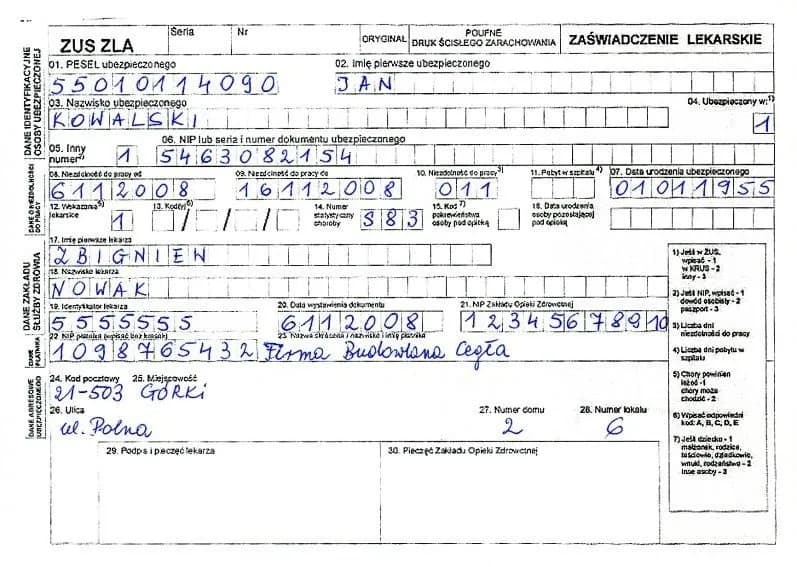 ZUS ZLA Seria Nr ORYGINAŁ POUFNE DRUK ŚCISŁEGO ZARACHOWANIA ZAŚWIADCZENIE LEKARSKIE
DANE IDENTYFIKACYJNE OSOBY UBEZPIECZONEJ
01. PESEL ubezpieczonego 02. Imię pierwsze ubezpieczonego
55010114090 JAN
03. Nazwisko ubezpieczonego 04. Ubezpieczony w:1)
KOWALSKI 1
06. NIP lub seria i numer dokumentu ubezpieczonego
05. Inny numer2) 1 5463082154
DANE O NIEZDOLNOŚCI DO PRACY
08. Niezdolność do pracy od 09. Niezdolność do pracy do 10. Niezdolność do pracy3) 11. Pobyt w szpitalu4) 07. Data urodzenia ubezpieczonego
6112008 16112008 011 01011955
12. Wskazania lekarskie5) 1 13. Kod(y)6) / / / 14. Numer statystyczny choroby S83 15. Kod7) pokrewieństwa osoby pod opieką 16. Data urodzenia osoby pozostającej pod opieką
DANE ZAKŁADU SŁUŻBY ZDROWIA
17. Imię pierwsze lekarza
ZBIGNIEW
18. Nazwisko lekarza
NOWAK
19. Identyfikator lekarza 20. Data wystawienia dokumentu 21. NIP Zakładu Opieki Zdrowotnej
5555555 6112008 12345678910
DANE PŁATNIKA
22. NIP płatnika (wpisać bez kresek) 23. Nazwa skrócona / nazwisko i imię płatnika
1098765432 Firma Budowlana Cegła
DANE ADRESOWE UBEZPIECZONEGO
24. Kod pocztowy 25. Miejscowość
21-503 GÓRKI
26. Ulica 27. Numer domu 28. Numer lokalu
ul. Polna 2 6
29. Podpis i pieczęć lekarza 30. Pieczęć Zakładu Opieki Zdrowotnej
1) Jeśli w ZUS,
wpisać - 1
w KRUS - 2
inny - 3
2) Jeśli NIP, wpisać - 1
dowód osobisty - 2
paszport - 3
3) Liczba dni
niezdolności do pracy
4) Liczba dni pobytu w
szpitalu
5) Chory powinien
leżeć -1
chory może
chodzić - 2
6) Wpisać odpowiedni
kod: A, B, C, D, E
7) Jeśli dziecko - 1
małżonek, rodzice,
teściowie, dziadkowie,
wnuki, rodzeństwo - 2
inne osoby - 3